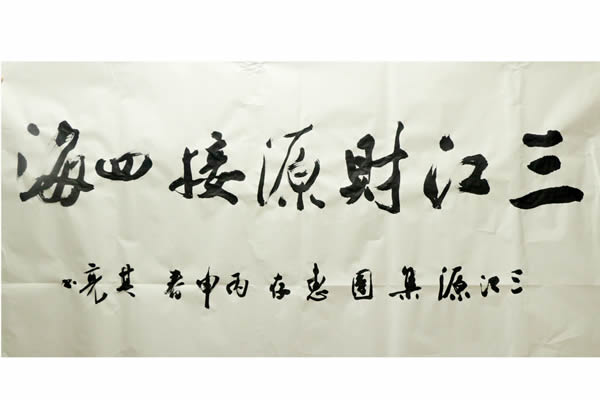 三江財源接四海
三江源集團惠存丙申春其亮书